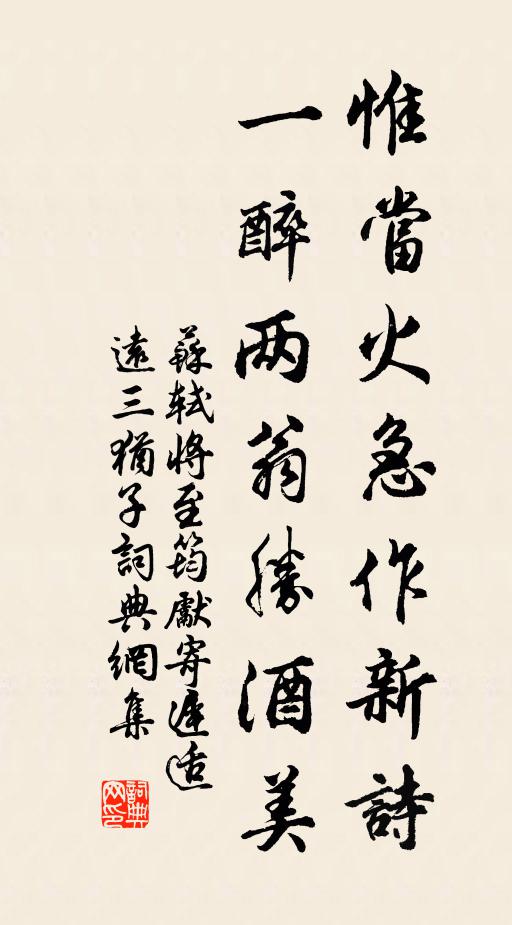 惟當火急作新詩
一醉两翁勝酒美
蘇軾將至筠獻寄遲适
遠三猶子詞典網集
詞典網印